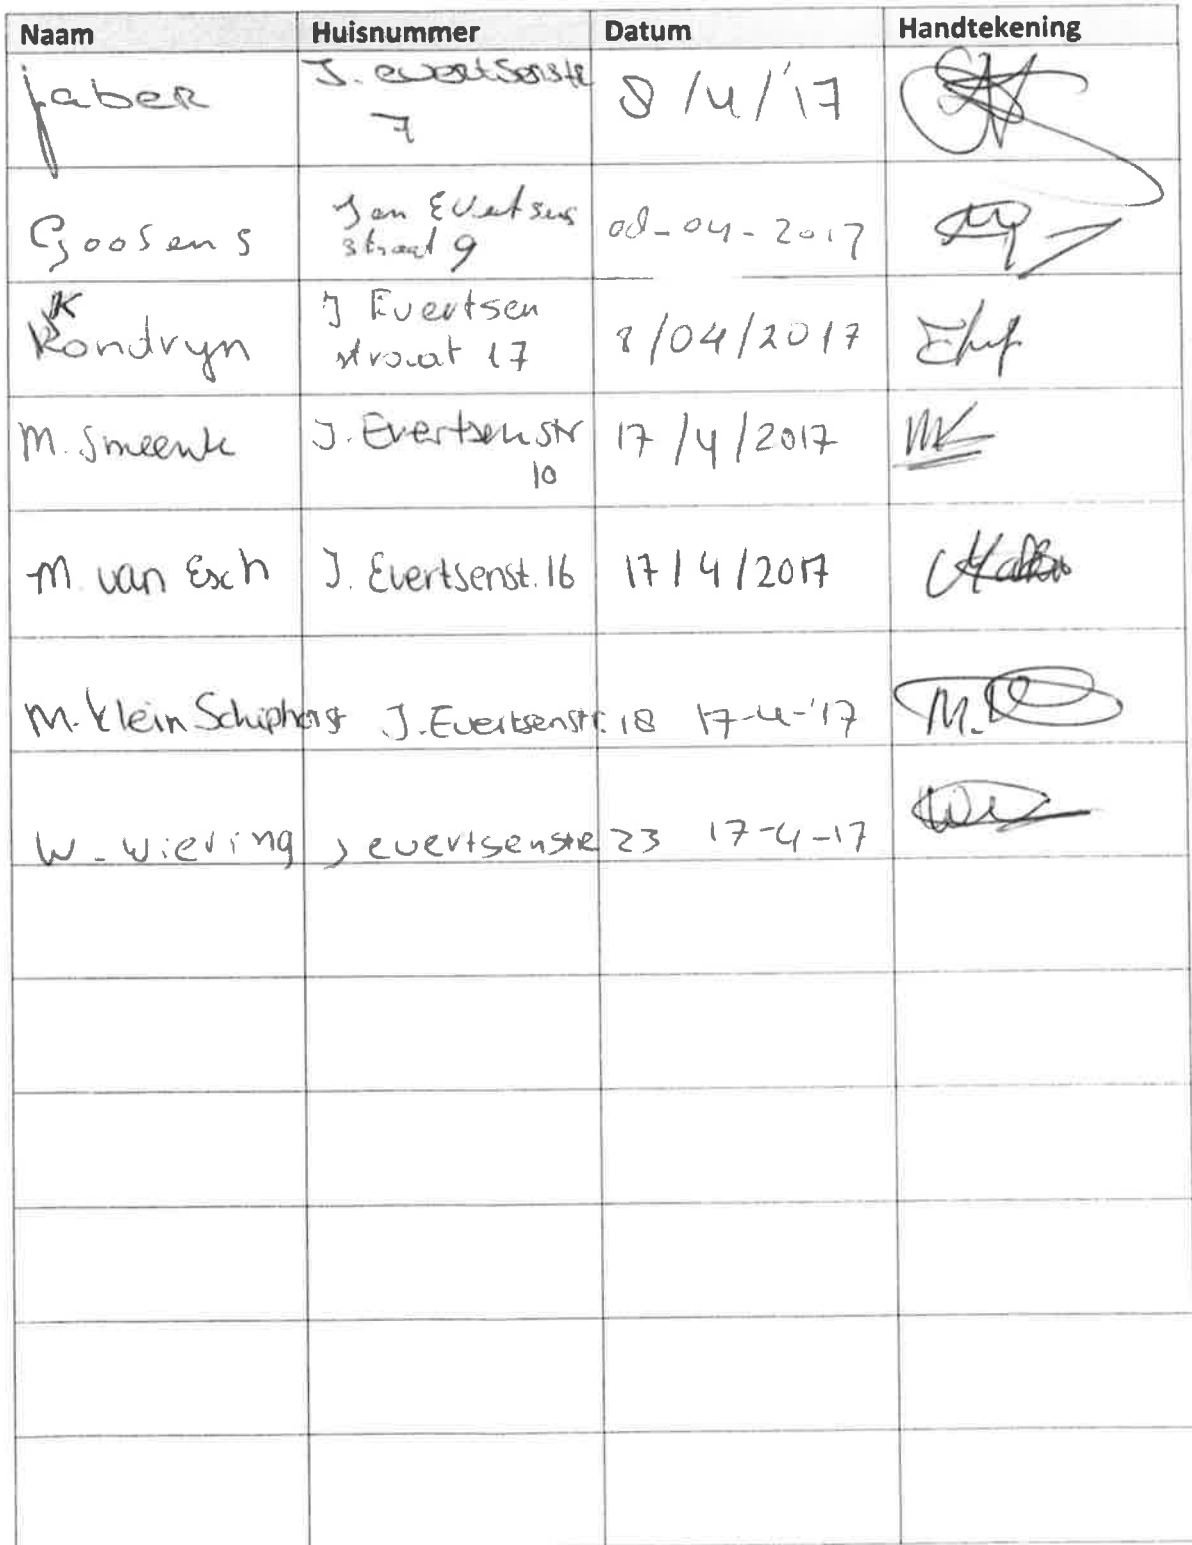 Naam Huisnummer Datum Handtekening
jaber J. evertsenstr 8/4/'17
7
Goosens Jan Evertsens 08-04-2017
straat 9
K
Kondryn J Evertsen 8/04/2017
straat 17
M. Smeenk J. Evertsenstr 17/4/2017
10
M. van Esch J. Evertsenst. 16 17/4/2017
M. Klein Schiphorst J. Evertsenstr. 18 17-4-'17
W. Wieving J evertsenstr 23 17-4-17